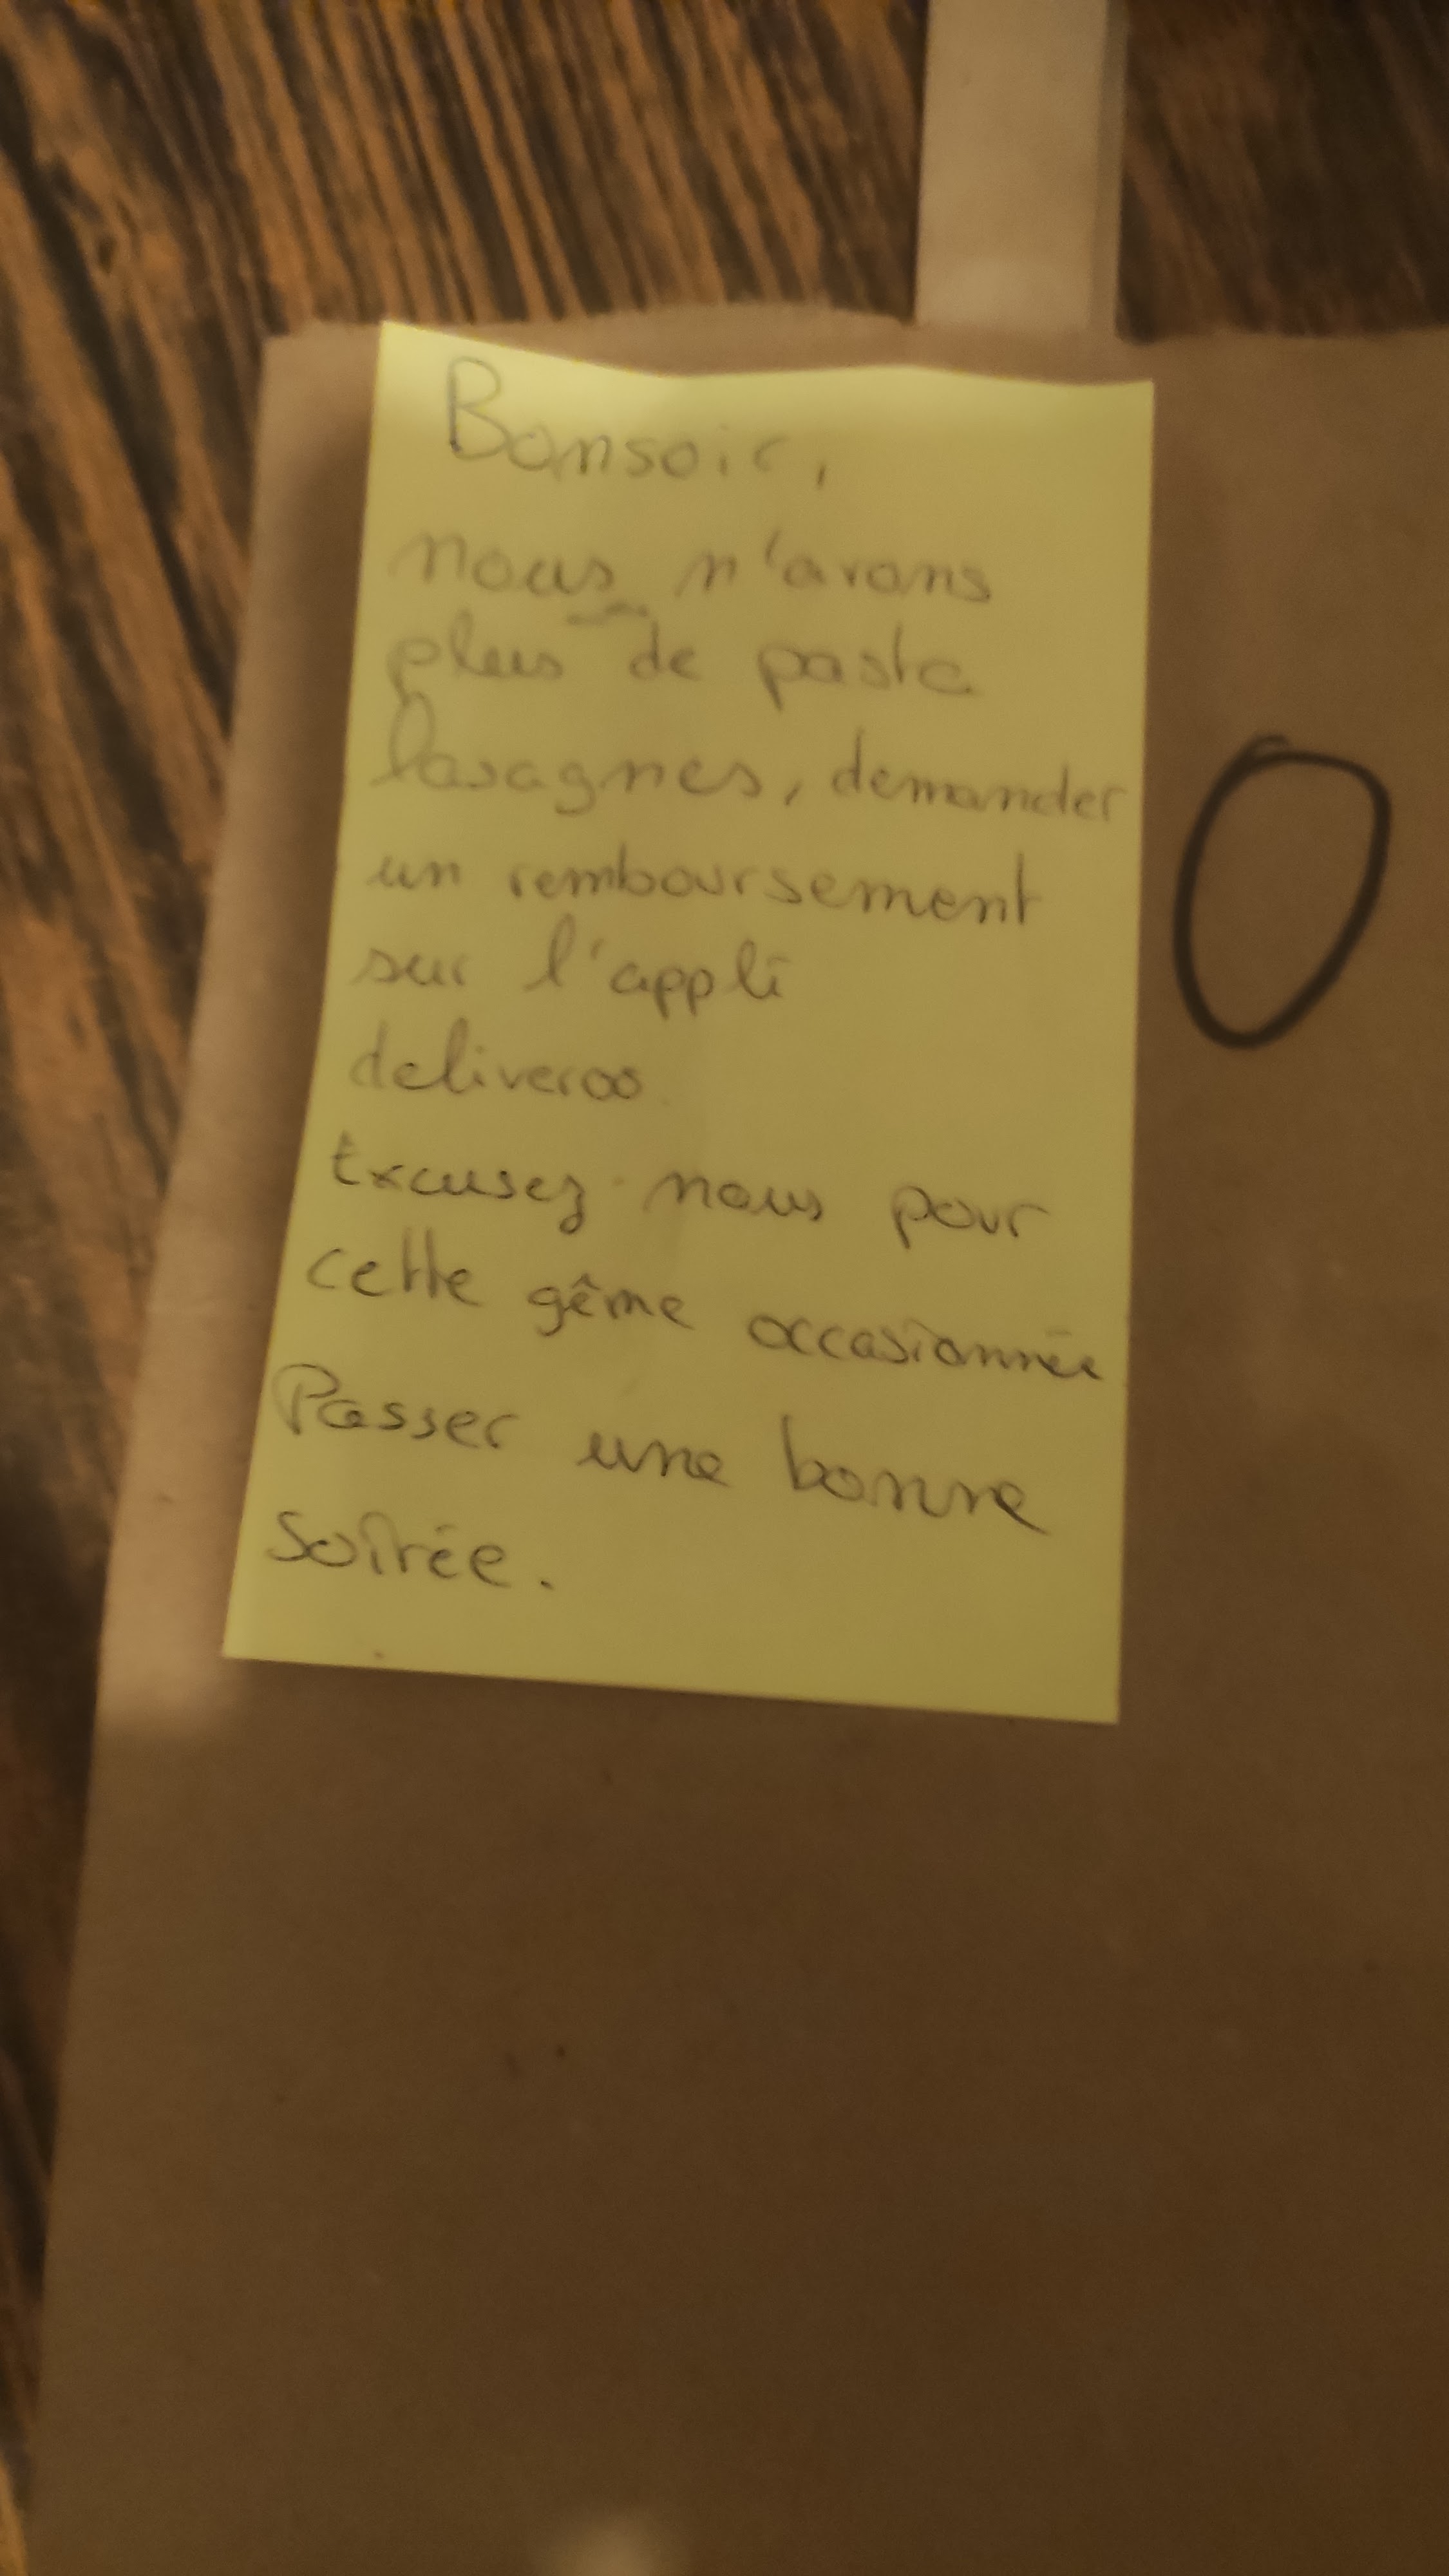 Bonsoir,
nous n'avons
plus de pasta
lasagnes, demander
un remboursement
sur l'appli
deliveroo
Excusez-nous pour
cette gêne occasionnée
Passer une bonne
soirée.
O